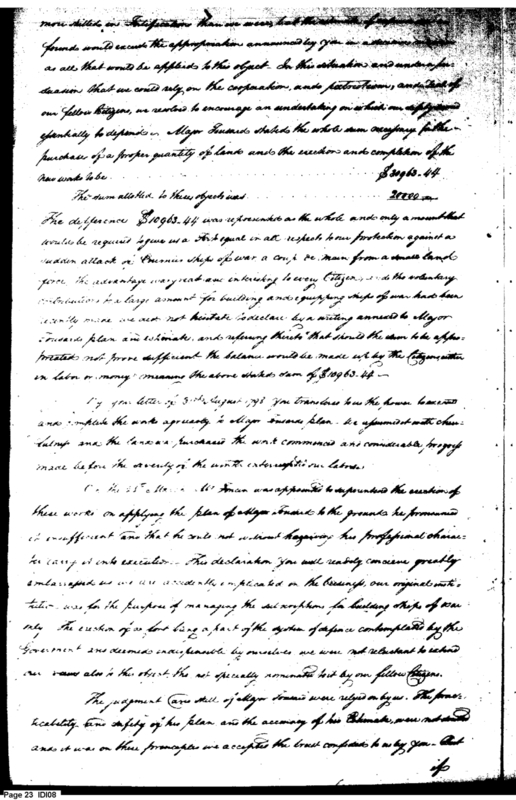 more skilled in Fortification than we were, but the estimate of expence
found would exceed the appropriation announced by you in
as all that would be applied to this object. In this situation and under
suasion that we could rely on the cooperation, and patriotism and zeal of
our fellow Citizens, we resolved to encourage an undertaking on which our
essentially to depend. Major Tousard stated the whole sum necessary for the
purchase of a proper quantity of land and the erection and completion of the
new works to be $30963.44
The sum allotted to these objects was 20000
The difference $10963.44 was represented as the whole and only amount that
would be required to give us a Fort equal in all respects to our protection against a
sudden attack or Cruising Ships of war a coup de main from a small land
force. The advantage was great and interesting to every Citizen and the voluntary
contributions to a large amount for building and equipping Ships of war had been
recently made we did not hesitate to declare by a writing annexed to Major
Tousards plan and estimate, and referring thereto that should the sum to be appro-
priated not prove sufficient the balance would be made up by the Citizens either
in labor or money meaning the above stated sum of $10963.44
By your letter of 3rd August 1798 you transferred to us the power to erect
and complete the works agreeably to Major Tousards plan. We assumed it with cheer-
fulness and the Land was purchased the work commenced and considerable progress
made before the severity of the winter interrupted our labors
On the was appointed to superintend the erection of
these works on applying the plan of Major Tousard to the grounds he pronounced
it insufficient and that he could not without hazarding his professional charac-
ter carry it into execution. This declaration you will readily conceive greatly
embarrassed us we are accidently implicated on the business, our original insti-
tution was for the purpose of managing the subscriptions for building Ships of War
only. The erection of a fort being a part of the system of defence contemplated by the
Government and deemed indispensible by ourselves we were not reluctant to extend
our views also to this object tho not specially nominated to it by our fellow Citizens.
The judgment and skill of Major Tousard were relyed on by us. The prac-
ticability and safety of his plan and the accuracy of his Estimate, were not doubted
and it was on these principles we accepted the trust confided to us by you. But
if
Page 23 IDI08